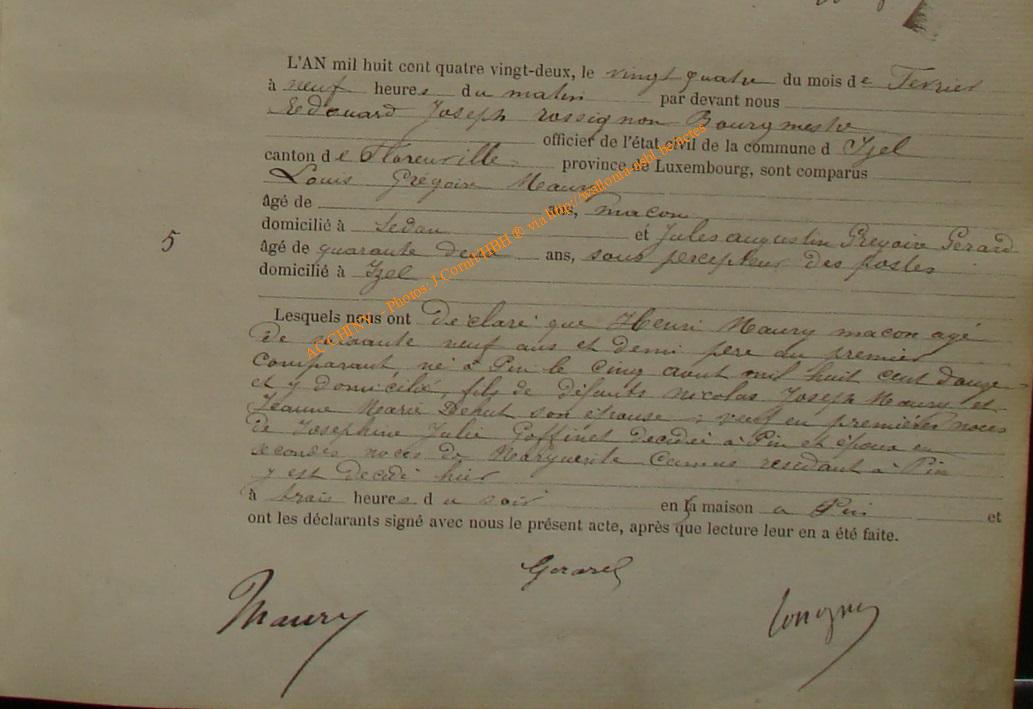 L'AN mil huit cent quatre vingt-deux, le vingt quatre du mois de Fevrier
à neuf heures du matin par devant nous
Edouard Joseph rossignon Bourgmestre
officier de l'état civil de la commune d Izel
canton de Florenville province de Luxembourg, sont comparus
Louis Grégoire Maury
âgé de ans, macon
domicilié à Sedan et Jules augustin Gregoire Gerard
5
âgé de quarante deux ans, sous percepteur des postes
domicilié à Izel
Lesquels nous ont declaré que Henri Maury macon agé
de neuf ans et demi pere du premier
comparant né à Pin le cinq aout mil huit cent douze
et y domicilié, fils de défunts nicolas Joseph Maury et
Jeanne Marie Dehut son épouse; veuf en premières noces
de Josephine Julie Goffinet decédée à Pin et époux en
secondes noces de Marguerite Camus residant à Pin
y est decedé hier
à trois heures du soir en sa maison a Pin et
ont les déclarants signé avec nous le présent acte, après que lecture leur en a été faite.
Gerard
Maury
ACCHINY - Photos: J Cornil HBH ® via http://wallonia-asbl.be/actes